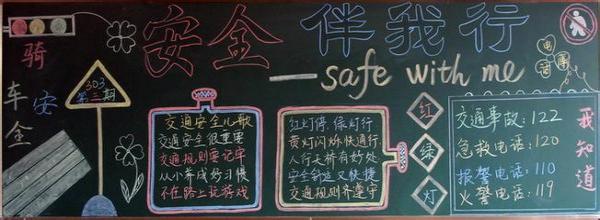 安全 伴我行
safe with me
骑车安全
303
第二期
交通安全儿歌
交通安全很重要
交通规则要记牢
从小养成好习惯
不在路上玩游戏
红灯停、绿灯行
黄灯闪烁快通行
人行天桥有好处
安全舒适又快捷
交通规则齐遵守
红
绿
灯
电话
交通事故:122
急救电话:120
报警电话:110
火警电话:119
我知道